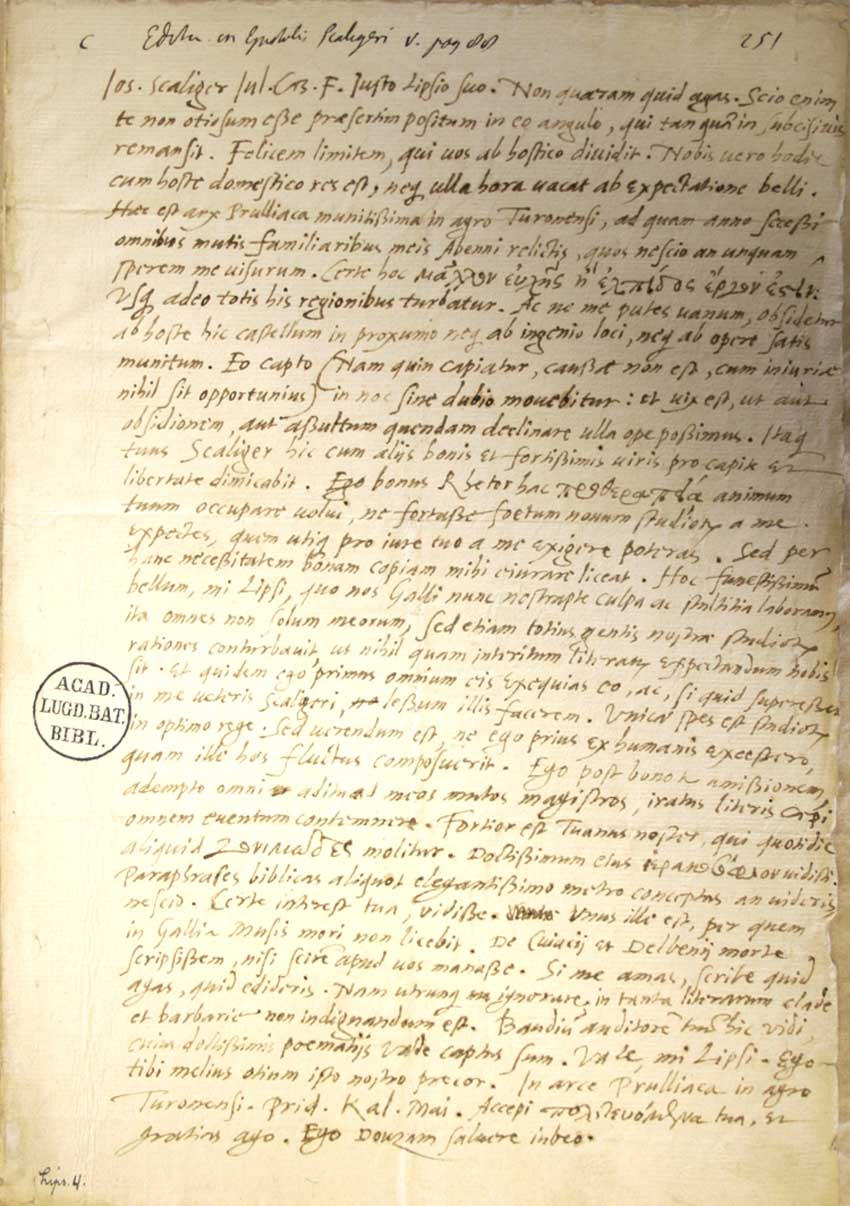 C Editae in Epistolis Scaligeri v. pag 88 251
Ios. Scaliger Iul. Caes. F. Iusto Lipsio suo. Non quaeram quid agas. Scio enim
te non otiosum esse praesertim positum in eo angulo, qui tanquam in subcisivis
remansit. Felicem limitem, qui vos ab hostico dividit. Nobis vero hodie
cum hoste domestico res est, neq ulla hora vacat ab expectatione belli.
Haec est arx Prulliaca munitissima in agro Turonensi, ad quam anno secessi
omnibus mutis familiaribus meis Abenni relictis, quos nescio an unquam
sperem me visurum. Certe hoc μᾶλλον εὐχῆς ἢ ἐλπίδος ἔργον ἐστίν.
Usq adeo totis his regionibus turbatur. Ac ne me putes vanum, obsidetur
ab hoste hic castellum in proxumo neq ab ingenio loci, neq ab opere satis
munitum. Eo capto (Nam quin capiatur, caussae non est, cum iniuriae
nihil sit opportunius) in nos sine dubio movebitur: et vix est, ut aut
obsidionem, aut assultum quendam declinare ulla ope possimus. Itaq
tuus Scaliger hic cum alijs bonis et fortissimis viris pro capite et
libertate dimicabit. Ego bonus Rhetor hac προθεραπείᾳ animum
tuum occupare volui, ne fortasse foetum novum studiorum a me
expectes, quem utiq pro iure tuo a me exigere poteras. Sed per
hanc necessitatem bonam copiam mihi eiurare liceat. Hoc funestissimum
bellum, mi Lipsi, quo nos Galli nunc nostrapte culpa ac stultitia laboramus,
ita omnes non solum meorum, sed etiam totius gentis nostrae studiorum
rationes conturbavit ut nihil quam interitum literarum expectandum nobis
sit. Et quidem ego primus omnium eis exequias eo, ac, si quid superesset
in me veteris Scaligeri, lessum illis facerem. Unica spes est studiorum
in optimo rege: Sed verendum est, ne ego prius ex humanis excessero,
quam ille hos fluctus composuerit. Ego post bonorum amissionem,
adempto omni aditu ad meos mutos magistros, iratus literis coepi
omnem eventum contemnere. Fortior est Tuanus noster, qui quotidie
aliquid molitur. Doctissimum eius vidisti.
Paraphrases biblicas aliquot elegantissimo metro conceptas an videris
nescio. Certe interest tua, vidisse. Unus ille est, per quem
in Gallia Musis mori non licebit. De Cuiacij et Delbenij morte
scripsissem, nisi scirem apud vos manasse. Si me amas, scribe quid
agas, quid edideris. Nam utrunq ignorare, in tanta literarum clade
et barbarie non indignandum est. Baudium auditorem tuum hic vidi
cuius doctissimis poematijs valde captus sum. Vale, mi Lipsi. Ego
tibi melius otium isto nostro precor. In arce Prulliaca in agro
Turonensi. Prid. Kal. Mai. Accepi πολιτευόμενα tua, et
gratias ago. Ego Douzam salvere iubeo.
ACAD.
LUGD. BAT.
BIBL.
Lips. 4.